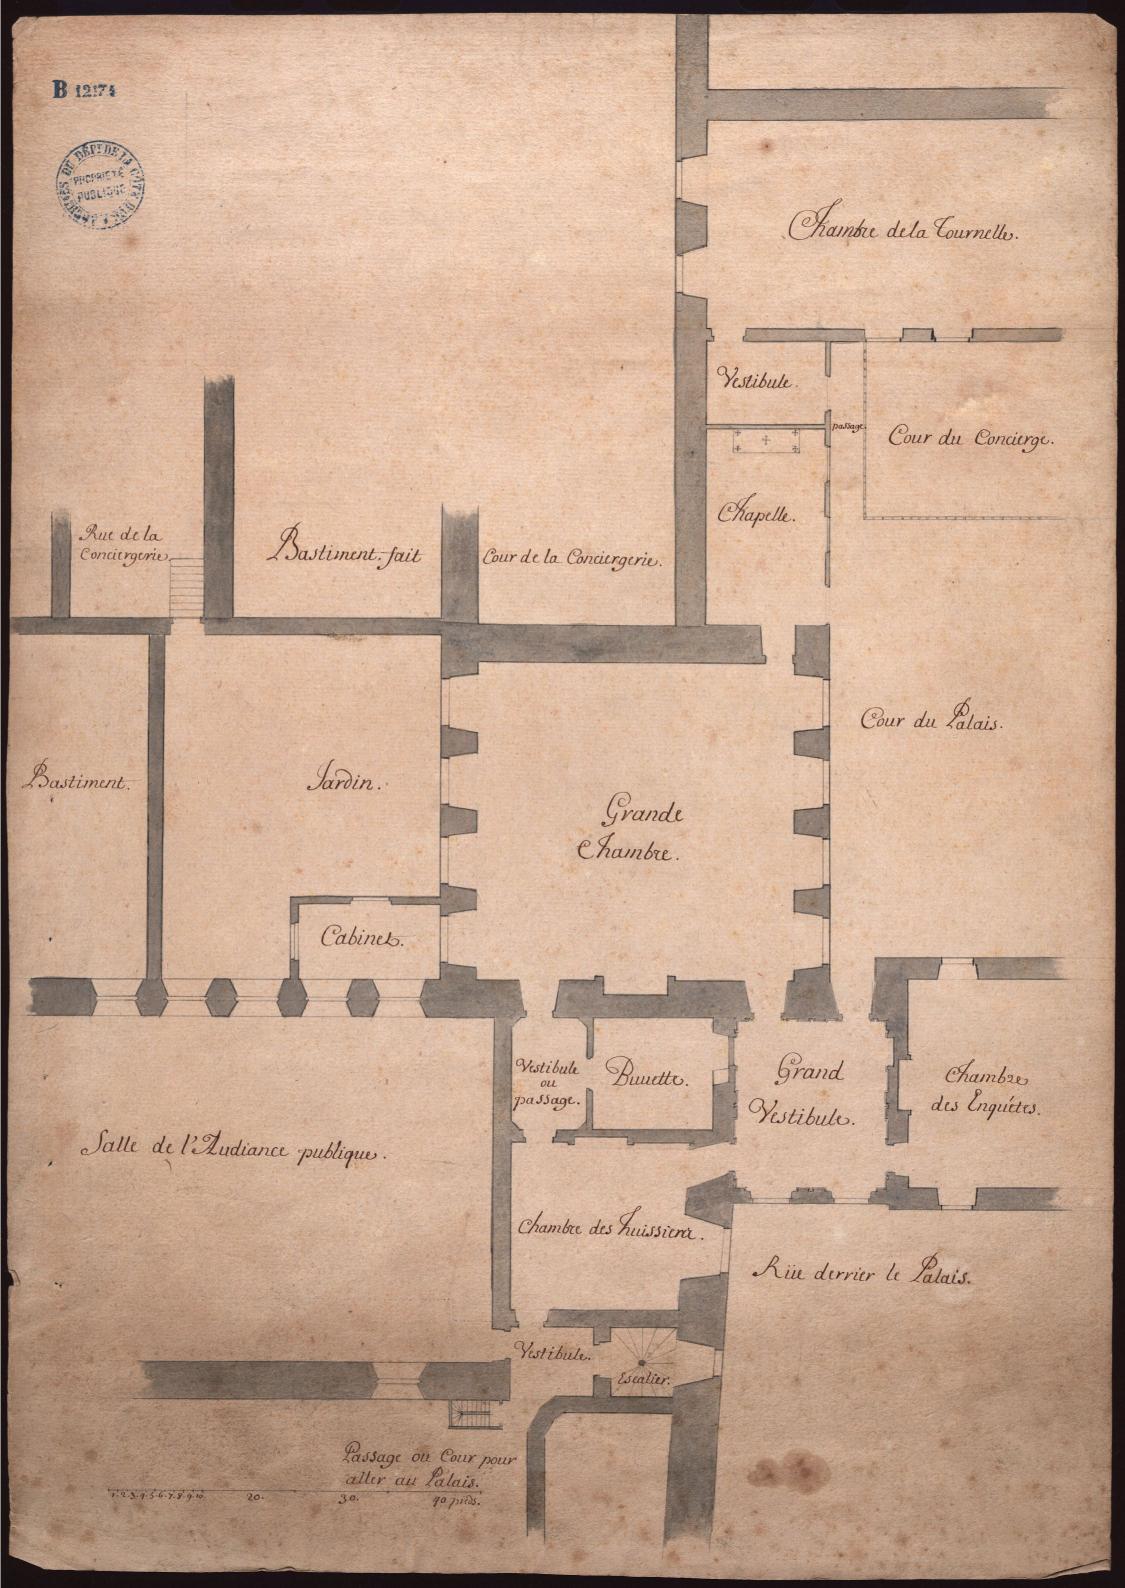 B 12174
ARCHIVES DU DÉPT DE LA CÔTE D'OR
PROPRIÉTÉ
PUBLIQUE
Chambre de la Tournelle.
Vestibule.
passage.
Cour du Concierge.
Chapelle.
Rue de la
Conciergerie.
Bastiment fait
Cour de la Conciergerie.
Cour du Palais.
Bastiment.
Jardin.
Grande
Chambre.
Cabinet.
Vestibule
ou
passage.
Buuette.
Grand
Vestibule.
Chambre
des Enquétes.
Salle de l'Audiance publique.
Chambre des huissiers.
Rüe derrier le Palais.
Vestibule.
Escalier.
Passage ou Cour pour
aller au Palais.
1.2.3.4.5.6.7.8.9.10. 20. 30. 40 pieds.